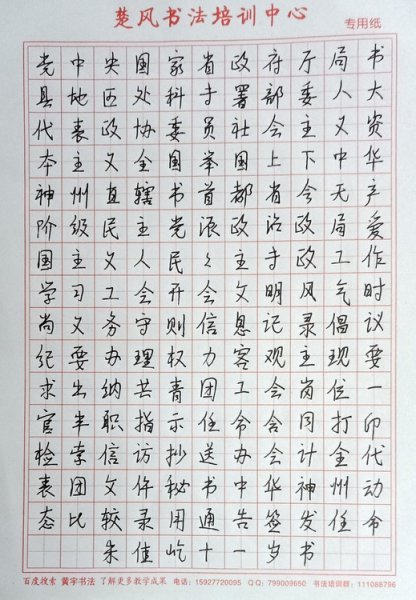 楚风书法培训中心
专用纸
党中央国家省政府厅局书
县地区处科寺署部委人大
代表政协委员社会主义资
本主义全国举国上下中华
神州直辖书首都省会无产
阶级民主党派政治政局爱
国主义人民々主寺政工作
学习工会开会文明风气时
尚义务守则信息记录倡议
纪要办理权力客观主现要
求出纳共青团工会岗位一
官半职指示任命合同打印
检索信访抄送办会计全代
表团文件秘书中华神州动
态比较录用通告签发任命
朱佳屹十一岁书
百度搜索 黄宇书法 了解更多教学成果 电话：15927720095 QQ：799009650 书法培训群：111088796